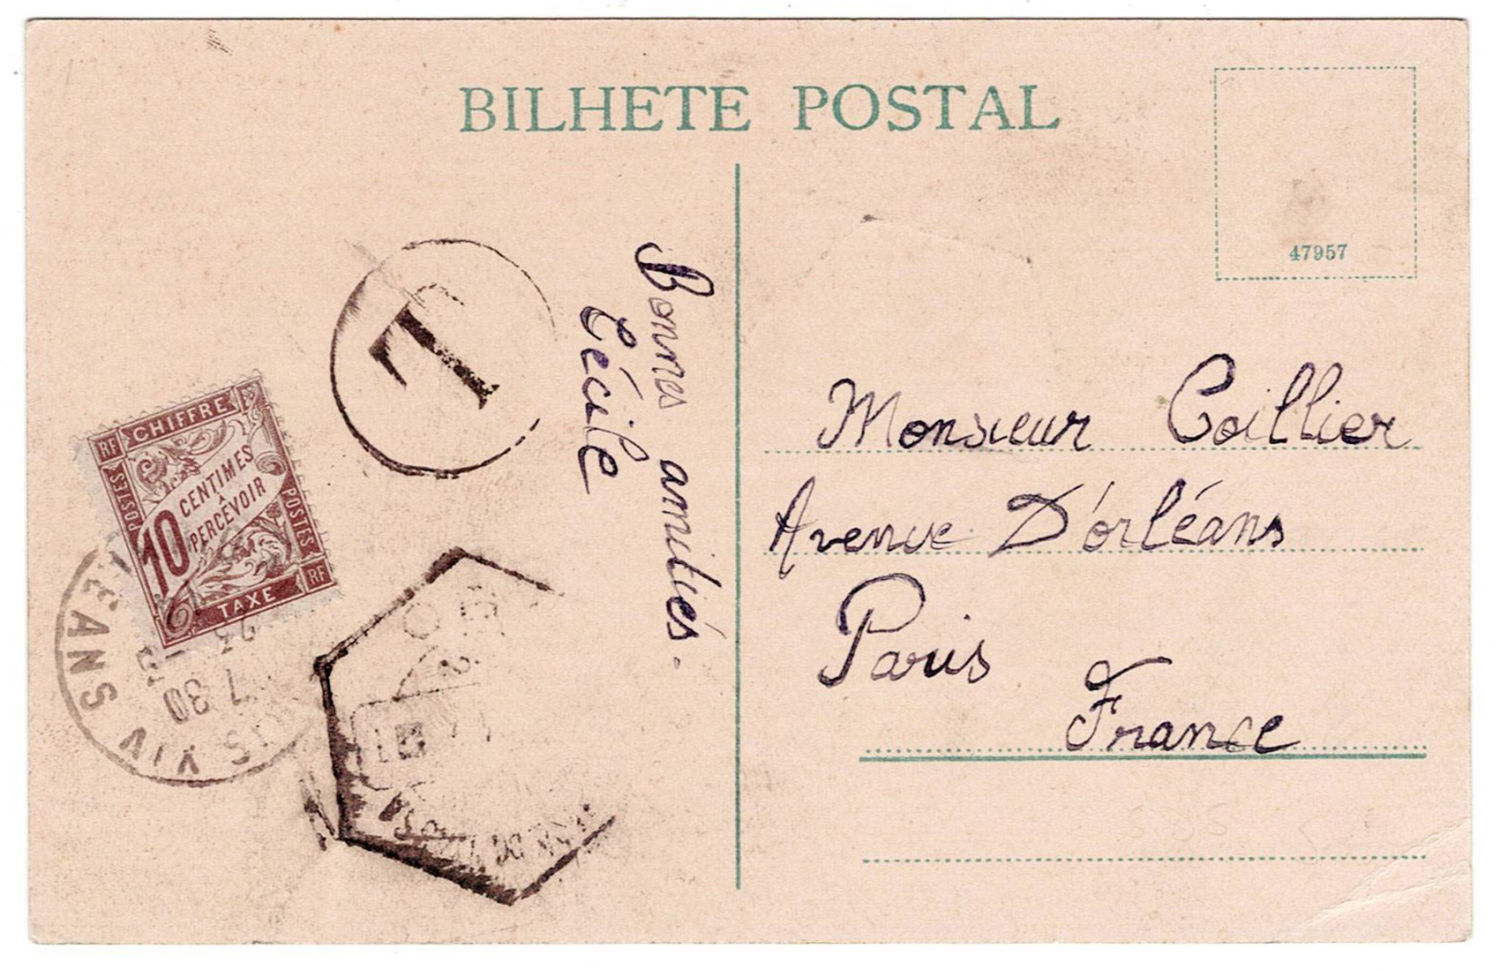 BILHETE POSTAL
47957
T
Bonnes amitiés.
Cécile
Monsieur Caillier
Avenue D'orléans
Paris
France
RF CHIFFRE
POSTES
POSTES
10 CENTIMES
À
PERCEVOIR
TAXE RF
7 30
XIV